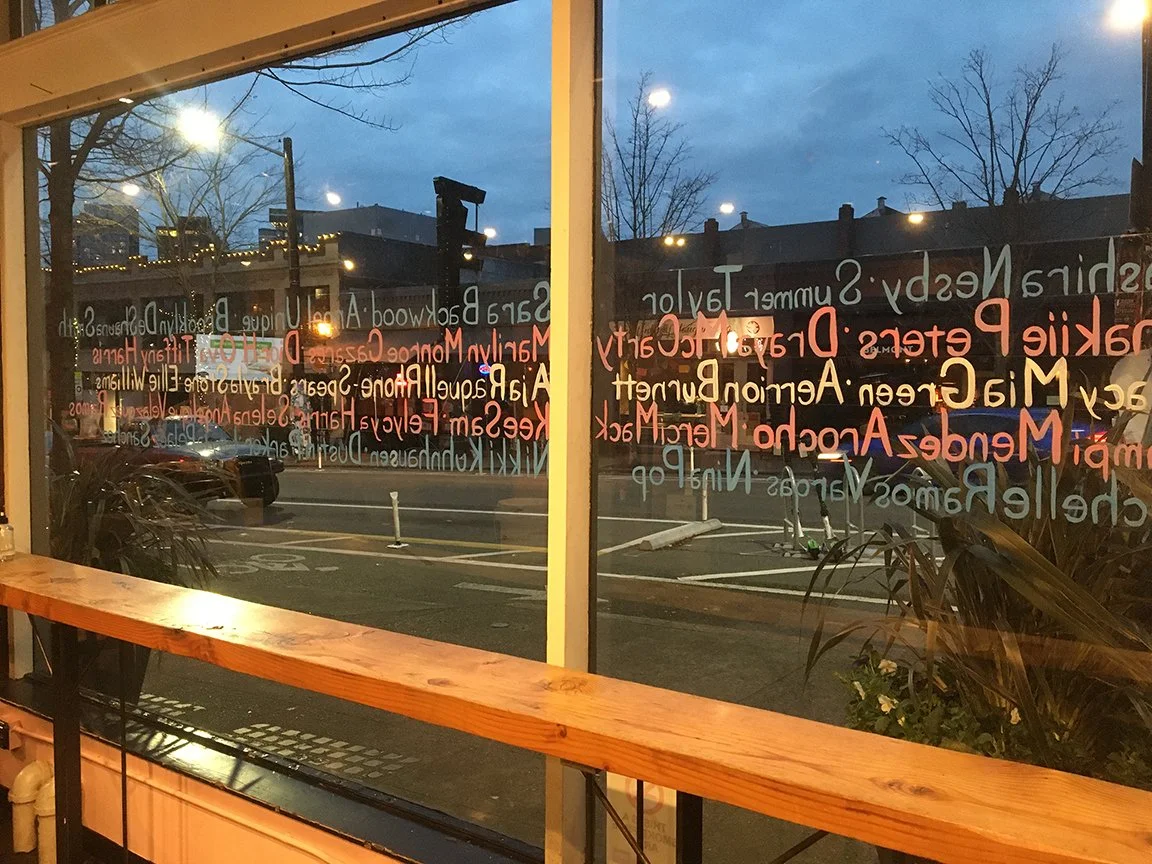 ashira Nesby · Summer Taylor Sara Backwood · Angel Unique · Brooklyn DeShauna Smith
akiie Peters · Draya McCarty Marilyn Monroe Cazares · Dior H Ova Tiffany Harris
acy Mia Green · Aerrion Burnett Aja Raquell Rhone-Spears · Brayla Stone · Ellie Williams
ampi Mendez Arocho · Merci Mack Kee Sam · Felycya Harris · Selena Angelique Velazquez Ramos
chelle Ramos Vargas · Nina Pop Nikki Kuhnhausen · Dustin Parker